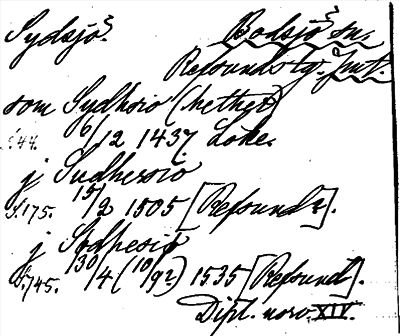 Sydsjö. Bodsjö sn.
Refsunds tg. Jmt.
som Sydhsio (hether)
s. 44. 6/12 1437 Lökn.
j Sudhersio
S. 175. 15/2 1505 [Refsund].
j Sodhesiö
S. 745. 30/4 (10/92) 1535 [Refsund].
Dipl. norv. XIV.